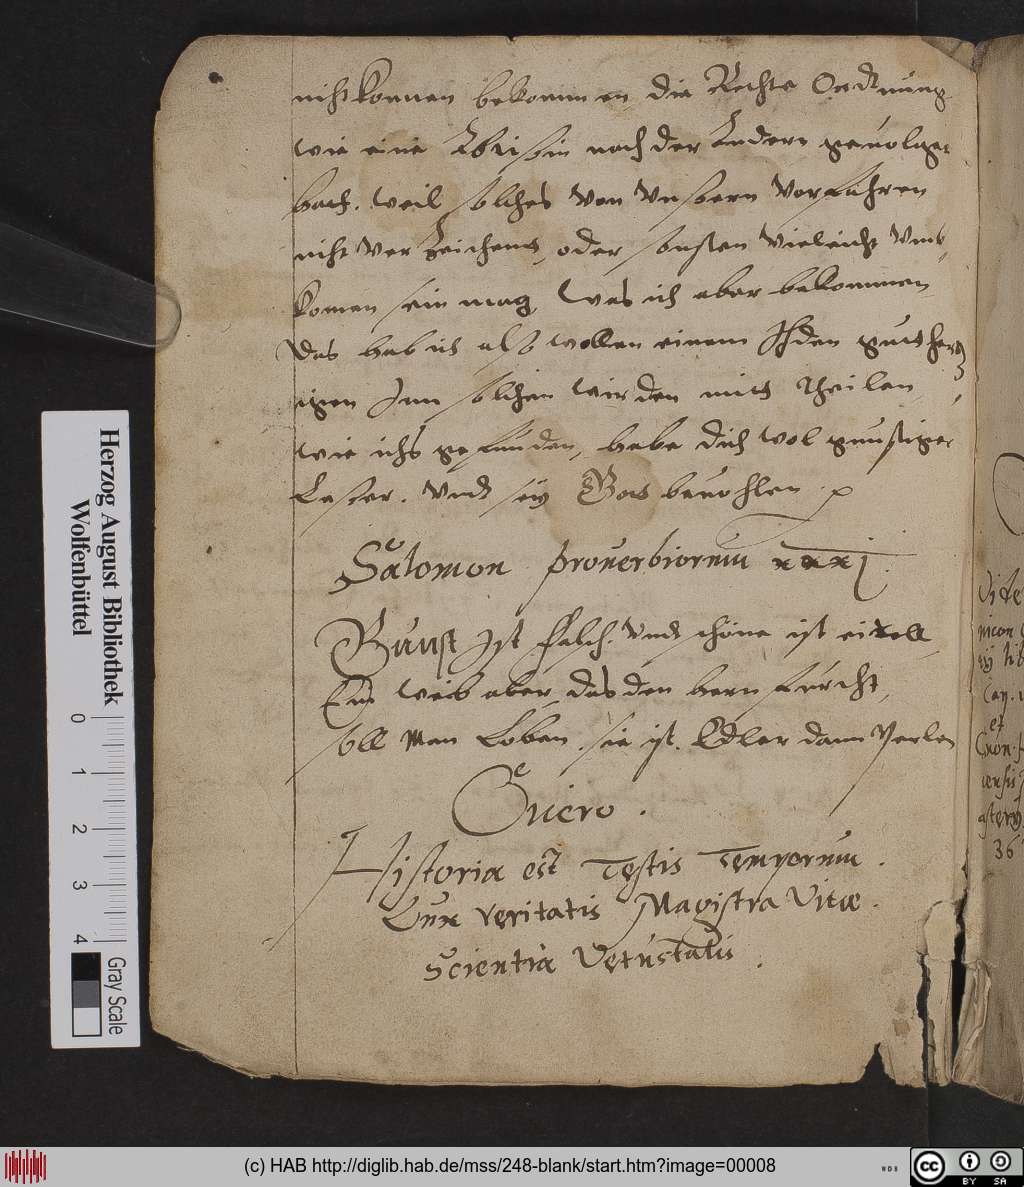 nicht konnen bekommen, die Rechte Ordtnung
wie eine Ebtißin nach der Andern geuolget
hatt. weil solches von vnsern Vorfahren
nicht verzeichent, oder sonsten vieleicht vmb
komen sein mag, was ich aber bekommen
das hab ich also wollen einem Jeden gutthertz
igen Inn solchen wirden mitt theilen,
wie ichs gefunden, habe dich wol gunstiger
Leser. vndt sey Gott beuohlen
Salomon prouerbiorum xxxj.
Gunst Ist falsch. vndt schöne ist eitell,
Ein weib aber, das den hern fürcht,
soll Man Loben. sie ist. Edler dann Perlen
Cicero.
Historia est Testis Temporum.
Lux veritatis Magistra Vitæ.
Scientia Vetustatis.
Vide
nicon
lib
Cap.
et
Cron.
36
Herzog August Bibliothek
Wolfenbüttel
0 1 2 3 4
Gray Scale
(c) HAB http://diglib.hab.de/mss/248-blank/start.htm?image=00008
WDB
cc BY SA